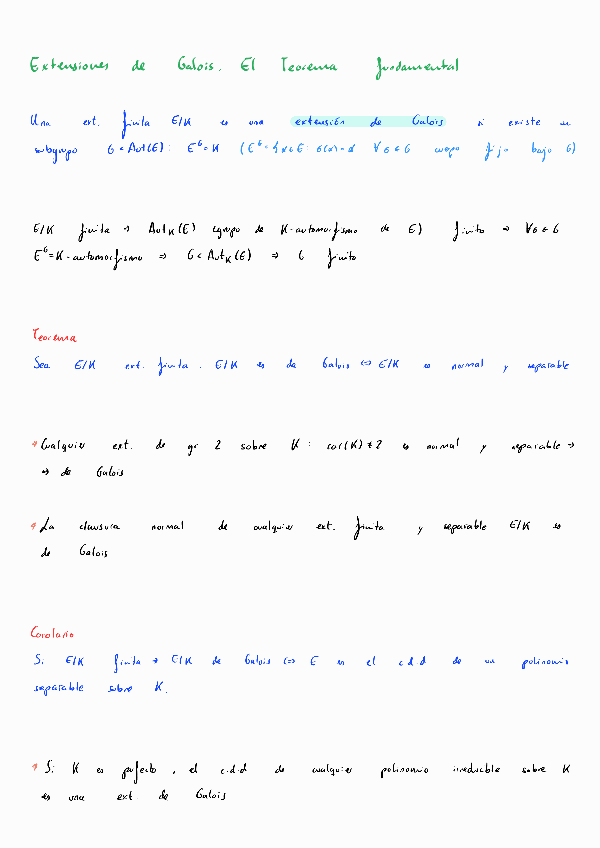 Extensiones de Galois. El Teorema fundamental
Una ext. finita E/K es una extensión de Galois si existe un
subgrupo G < Aut(E): E^G = K (E^G = {α∈E: σ(α)=α ∀σ∈G cuerpo fijo bajo G)
E/K finita → Aut_K(E) (grupo de K-automorfismo de E) finito ⇒ ∀σ∈G
E^G = K-automorfismo ⇒ G < Aut_K(E) ⇒ G finito
Teorema
Sea E/K ext. finita. E/K es de Galois ⇔ E/K es normal y separable
Cualquier ext. de gr 2 sobre K: car(K)≠2 es normal y separable →
⇒ de Galois
La clausura normal de cualquier ext. finita y separable E/K es
de Galois
Corolario
Si E/K finita → E/K de Galois ⇔ E es el c.d.d de un polinomio
separable sobre K.
Si K es perfecto, el c.d.d de cualquier polinomio irreducible sobre K
es una ext de Galois